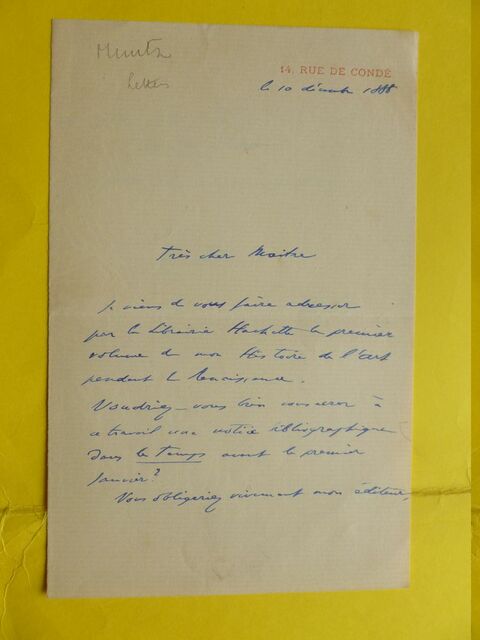 Muntz
Lettres
14, RUE DE CONDÉ
le 10 décembre 1888
Très cher Maître
Je viens de vous faire adresser
par la librairie Hachette le premier
volume de mon Histoire de l'Art
pendant la Renaissance.
Voudriez-vous bien consacrer à
ce travail une notice bibliographique
dans le Temps avant le premier
Janvier?
Vous obligeriez vivement mon éditeur,